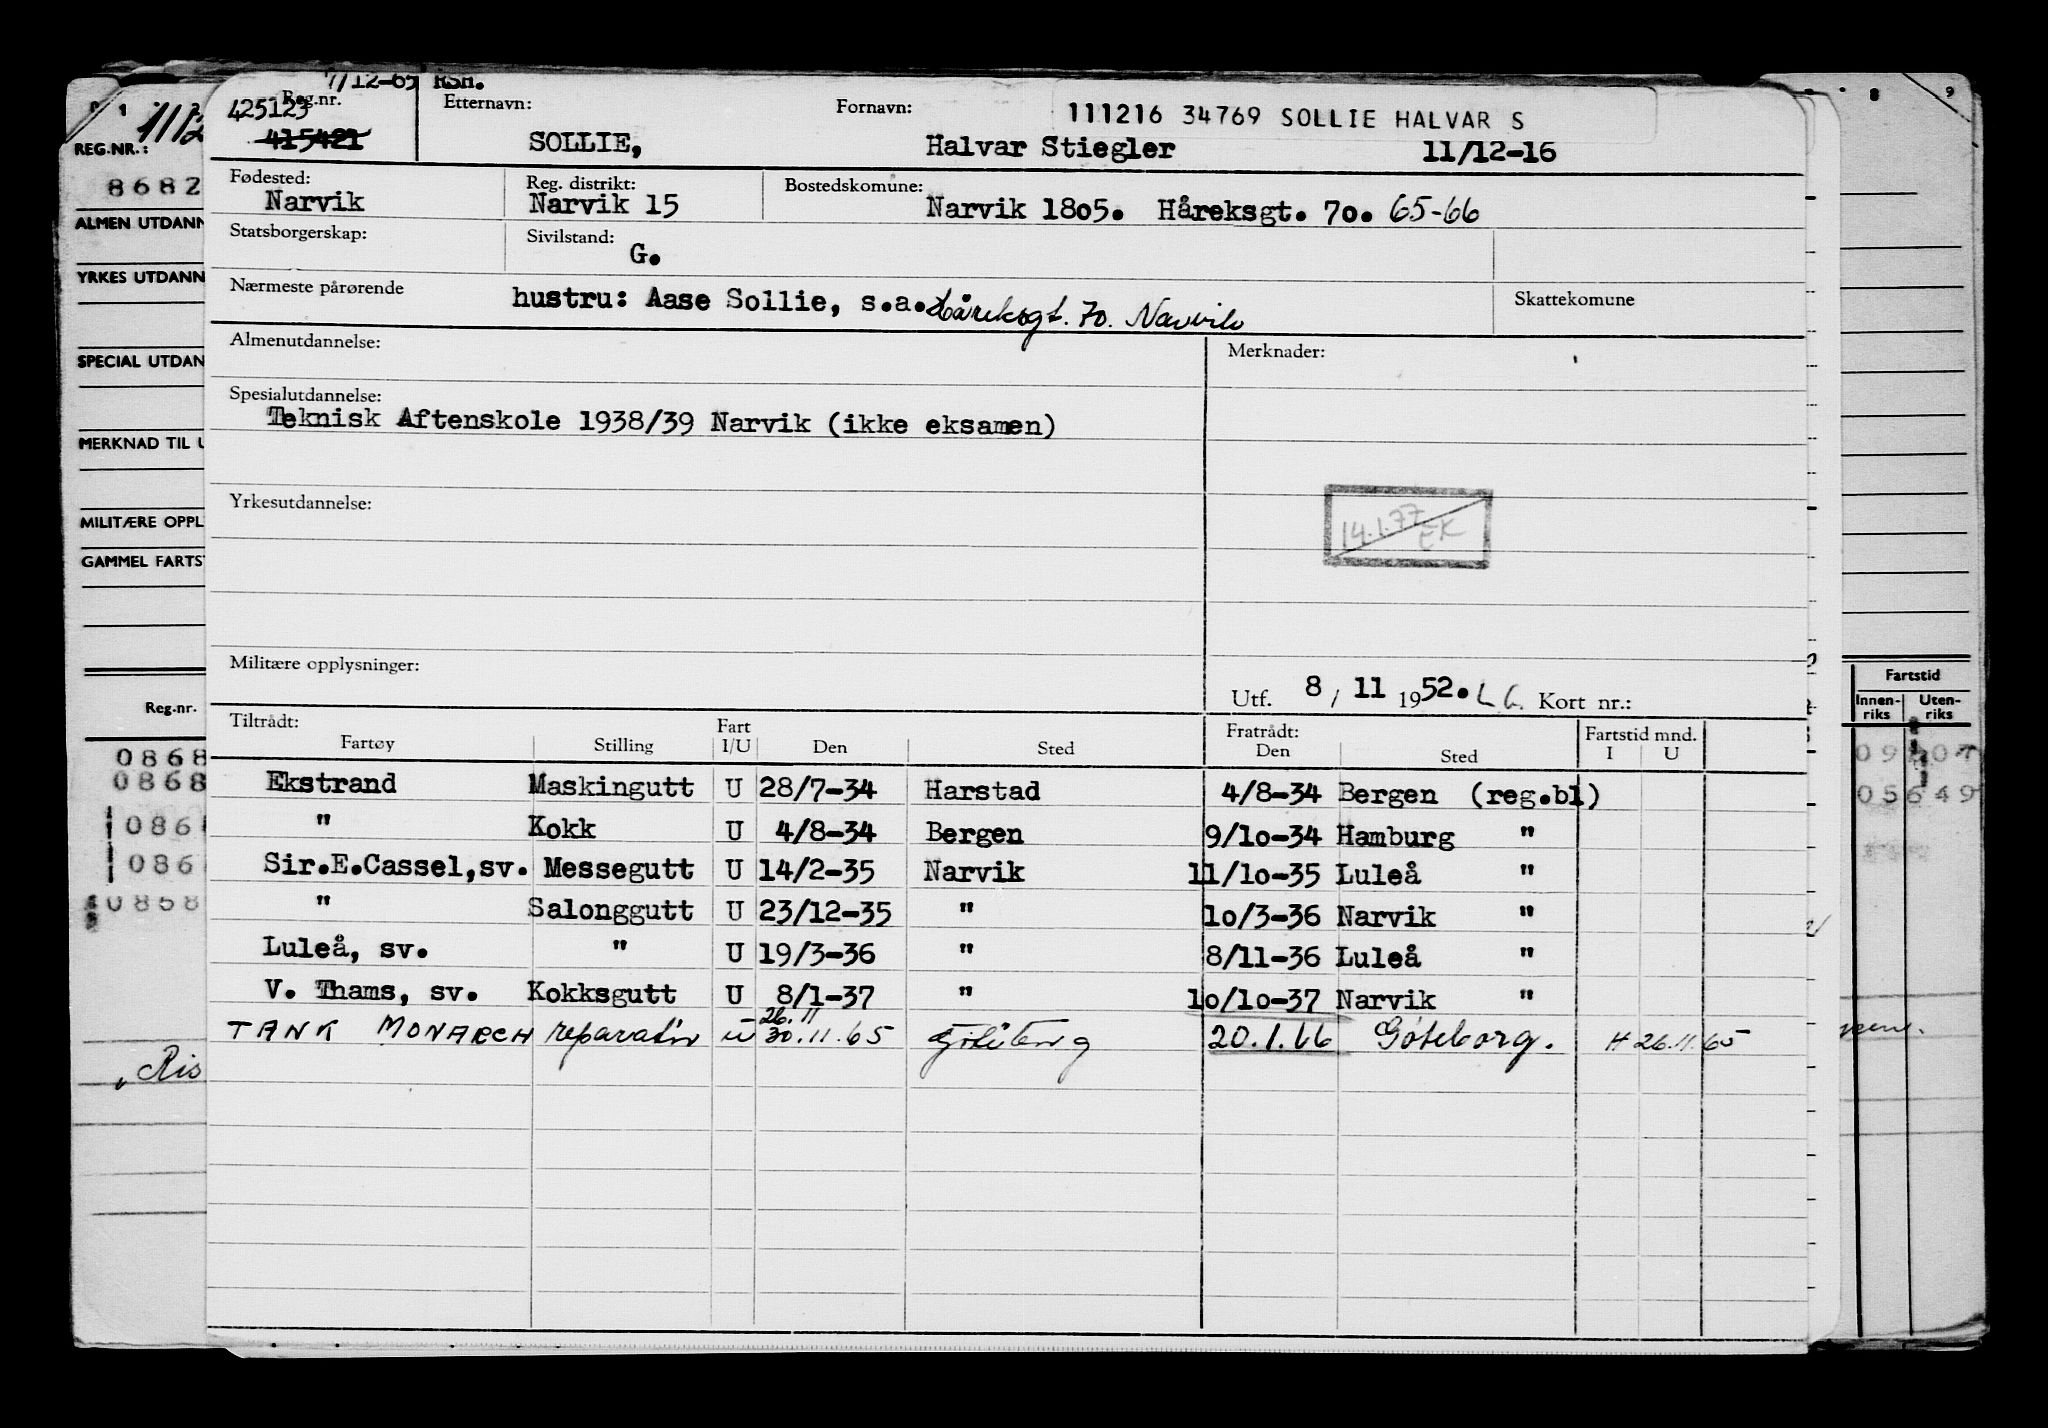 7/12-65 RSH.
Reg.nr. Etternavn: Fornavn: 111216 34769 SOLLIE HALVAR S
425123
415421 SOLLIE, Halvar Stiegler 11/12-16
Fødested: Reg. distrikt: Bostedskomune:
Narvik Narvik 15 Narvik 1805. Håreksgt. 70. 65-66
Statsborgerskap: Sivilstand:
G.
Nærmeste pårørende hustru: Aase Sollie, s.a. Håreksgt. 70. Narvik Skattekomune
Almenutdannelse: Merknader:
Spesialutdannelse:
Teknisk Aftenskole 1938/39 Narvik (ikke eksamen)
Yrkesutdannelse:
14.1.77 EK
Militære opplysninger:
Utf. 8 / 11 1952. L G. Kort nr.:
Tiltrådt: Fart Fratrådt: Fartstid mnd.
Fartøy Stilling I/U Den Sted Den Sted I U
Ekstrand Maskingutt U 28/7-34 Harstad 4/8-34 Bergen (reg.bl)
" Kokk U 4/8-34 Bergen 9/10-34 Hamburg "
Sir.E.Cassel,sv. Messegutt U 14/2-35 Narvik 11/10-35 Luleå "
" Salonggutt U 23/12-35 " 10/3-36 Narvik "
Luleå, sv. " U 19/3-36 " 8/11-36 Luleå "
V. Thams, sv. Kokksgutt U 8/1-37 " 10/10-37 Narvik "
26.11
TANK MONARCH reparatör u 30.11.65 20.1.66 Göteborg. H 26.11.65
REG.NR.: 11/12
8682
ALMEN UTDANN
YRKES UTDANN
SPECIAL UTDAN
MERKNAD TIL U
MILITÆRE OPPL
GAMMEL FARTST
Reg.nr.
0868
0868
086
086
0868
Ris
8 9
Fartstid
Innen-riks Uten-riks
09
05649